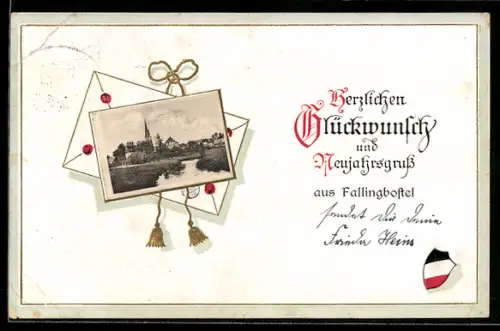 Herzlichen
Glückwunsch
und
Neujahrsgruß
aus Fallingbostel
sendet Dir Deine
Frieda Heins